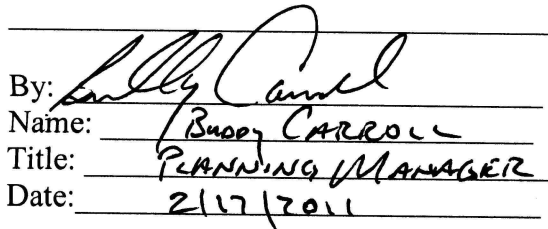 By: Buddy Carroll
Name: BUDDY CARROLL
Title: PLANNING MANAGER
Date: 2/17/2011